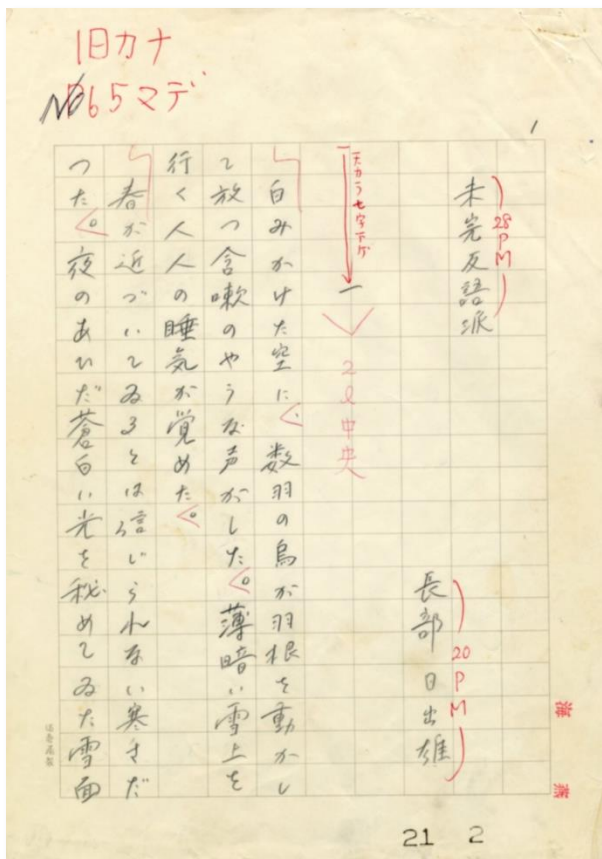 旧カナ
No 65マデ
1
未完反語派
28PM
長部 日出雄
20PM
天カラ七字下ゲ
一
2l中央
白みかけた空に、数羽の烏が羽根を動かし
て放つ含嗽のやうな声がした。薄暗い雪上を
行く人人の睡気が覚めた。
春が近づいてゐるとは信じられない寒さだ
つた。夜のあひだ蒼白い光を秘めてゐた雪面
海燕
21 2